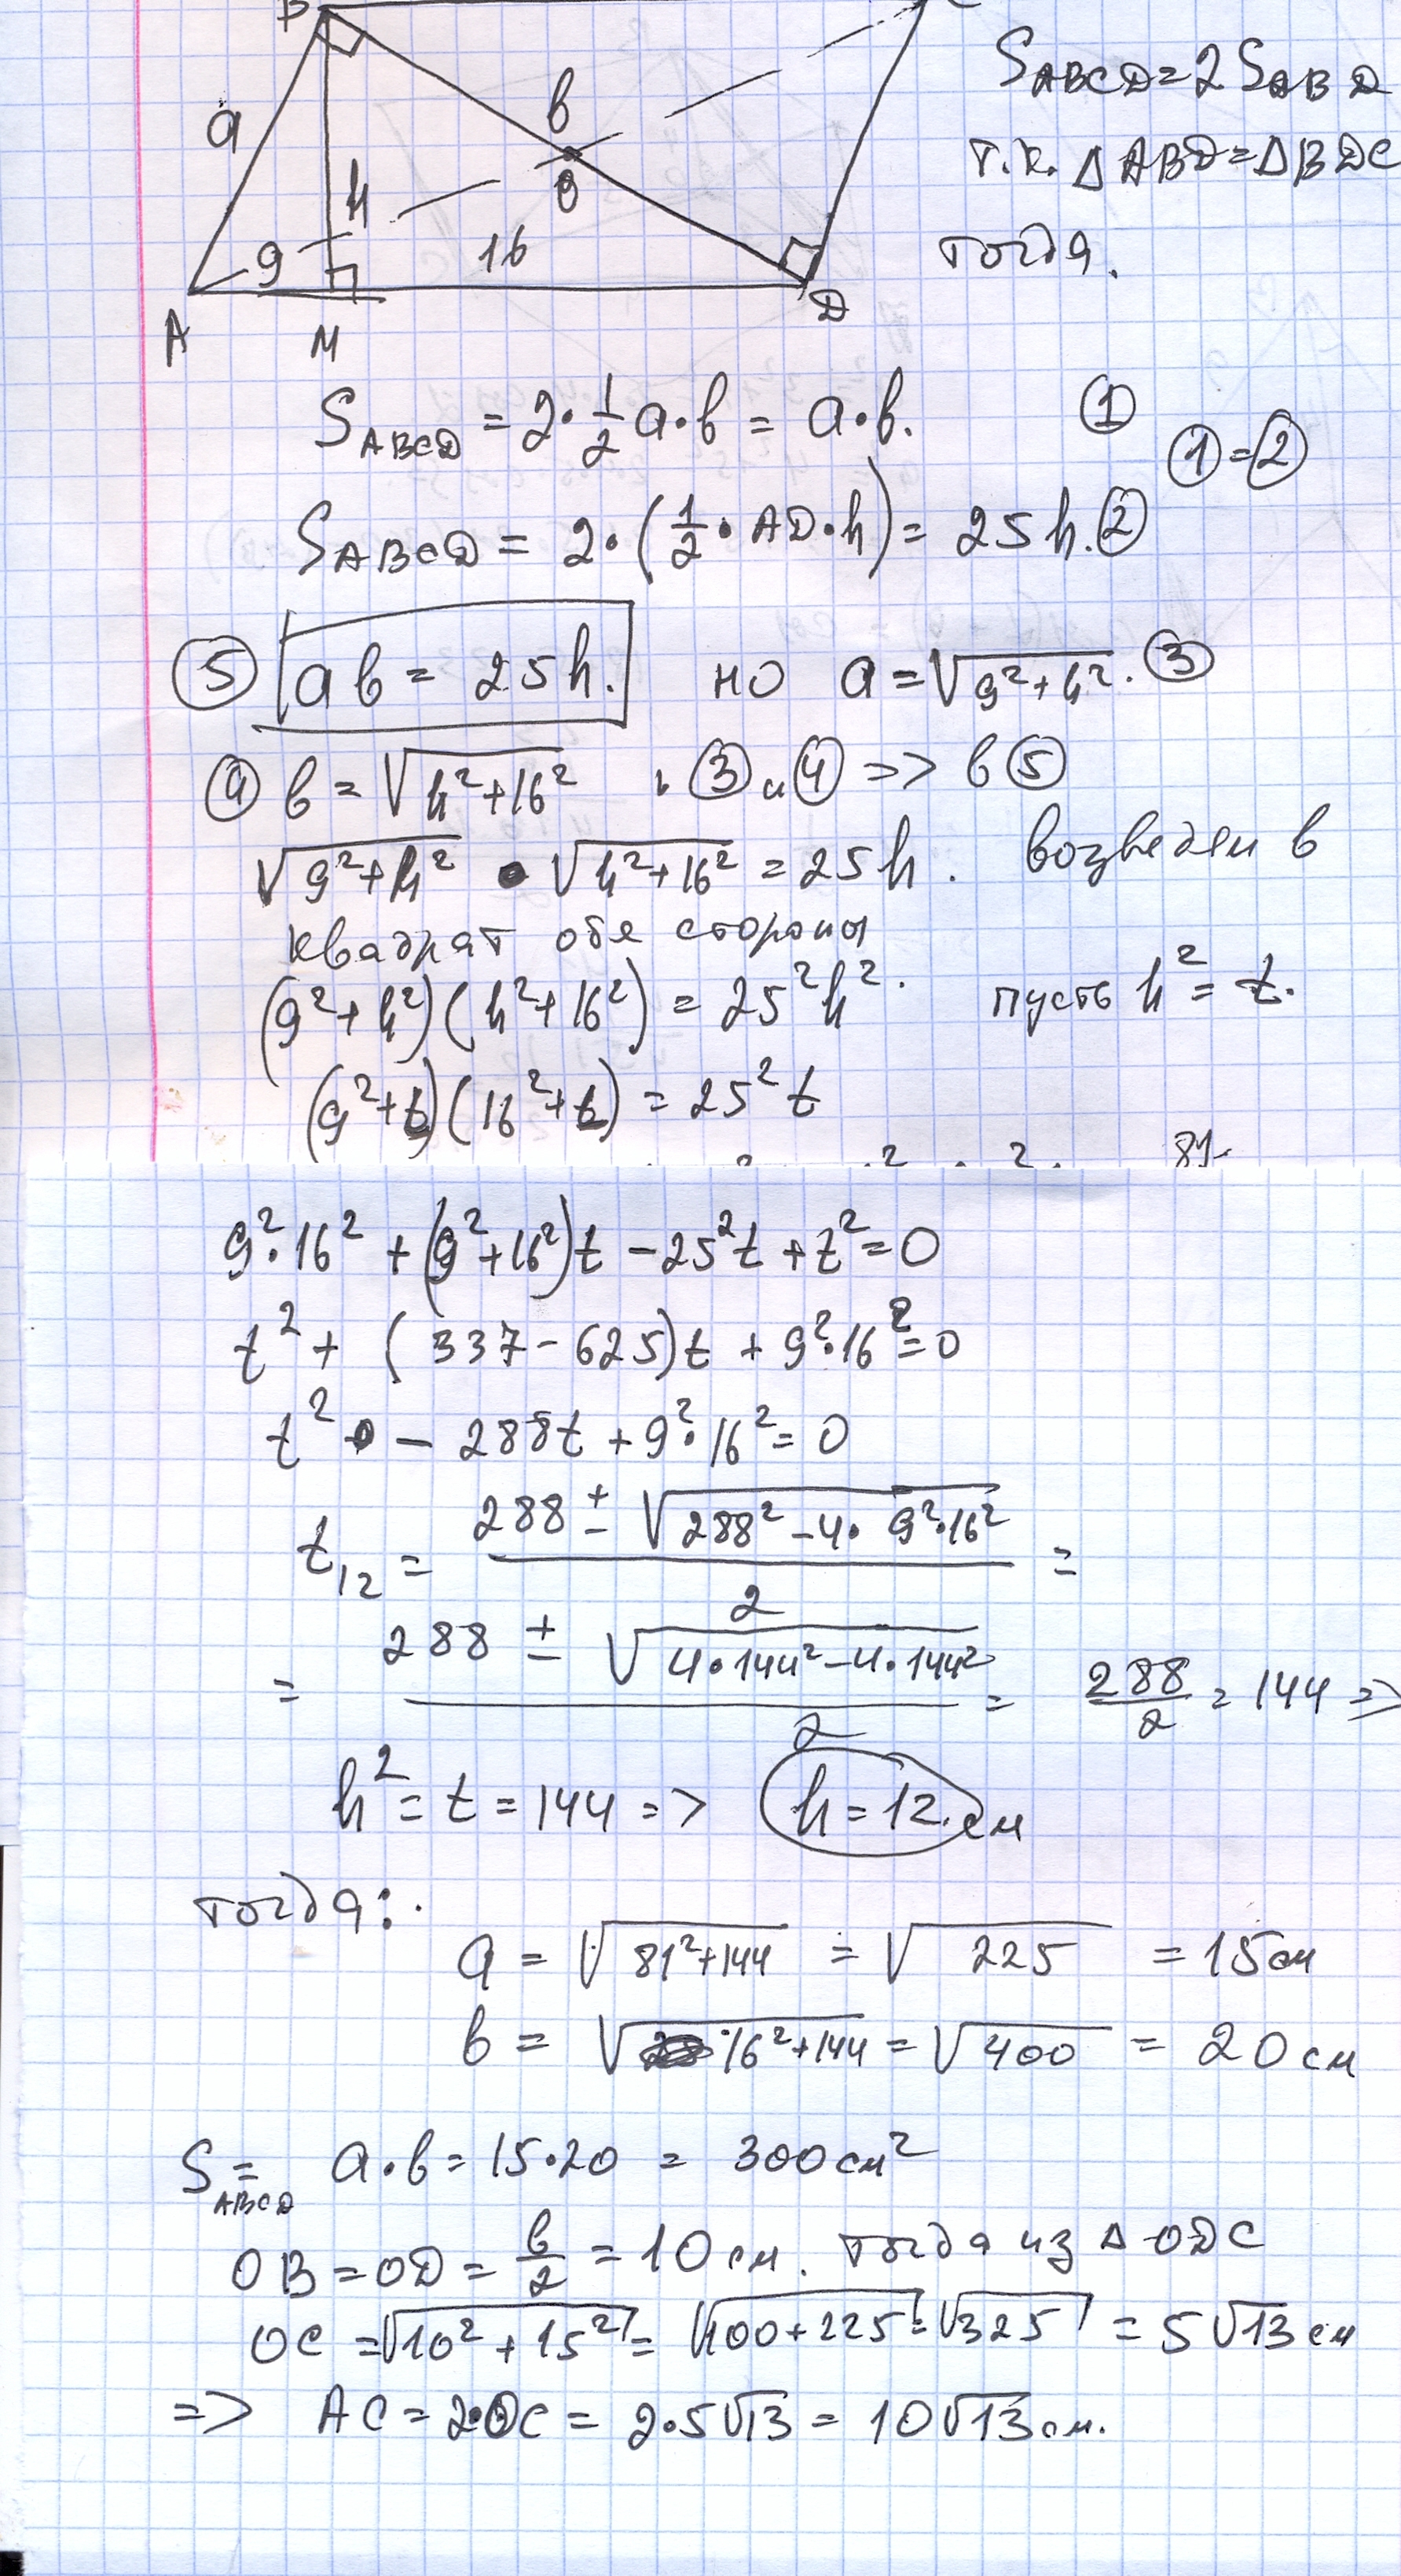 B
C
a
в
h
О
9
16
А
М
D
S ABCD = 2 S ABD
т.к. Δ ABD = Δ BDC
тогда.
S ABCD = 2·1/2 a·в = a·в. ①
① = ②
S ABCD = 2·(1/2·AD·h) = 25h. ②
⑤ aв = 25h. но a = √(9²+h²). ③
④ в = √(h²+16²) . ③ и ④ => в ⑤
√(9²+h²) · √(h²+16²) = 25h. возведем в
квадрат обе стороны
(9²+h²)(h²+16²) = 25²h². пусть h² = t.
(9²+t)(16²+t) = 25²t
9²·16² + (9²+16²)t − 25²t + t² = 0
t² + (337 − 625)t + 9²·16² = 0
t² − 288t + 9²·16² = 0
t₁₂ = (288 ± √(288² − 4·9²·16²))/2 =
= (288 ± √(4·144² − 4·144²))/2 = 288/2 = 144 =>
h² = t = 144 => h = 12 см
тогда:
a = √(81²+144) = √225 = 15 см
в = √(16²+144) = √400 = 20 см
S ABCD = a·в = 15·20 = 300 см²
OB = OD = в/2 = 10 см. тогда из Δ ODC
OC = √(10²+15²) = √(100+225) = √325 = 5√13 см
=> AC = 2·OC = 2·5√13 = 10√13 см.